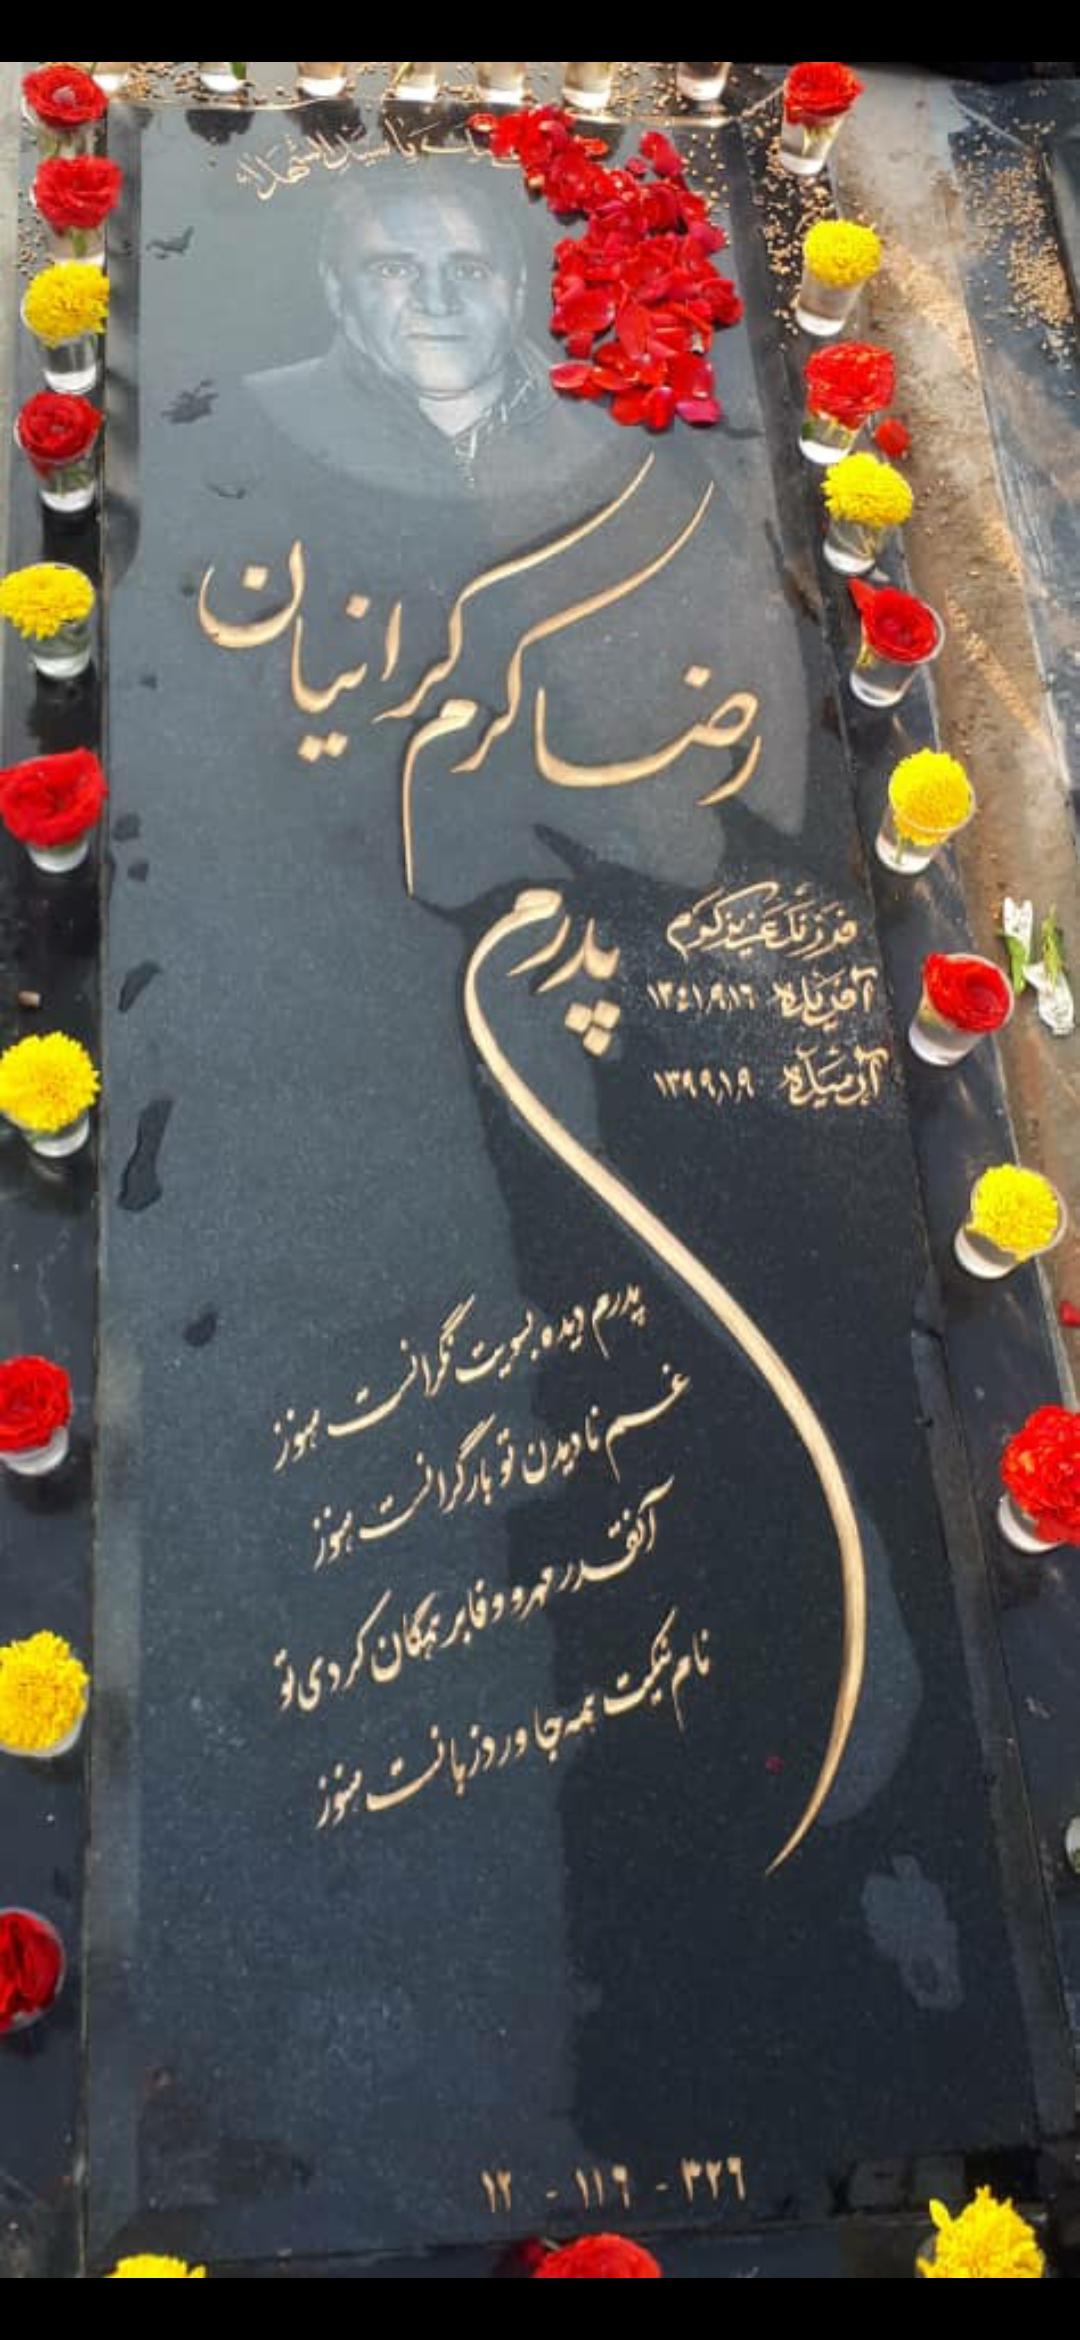 یا سیدالشهداء
رضا کرم کرانیان
پدرم
فرزند عزیز کرم
آفریده ۱۳۴۱٫۹٫۱۶
آرمیده ۱۳۹۹٫۱٫۹
پدرم دیده بسویت نگرانست هنوز
غم نادیدن تو بار گرانست هنوز
آنقدر مهر و وفا بر همگان کردی تو
نام نیکت همه جا ورد زبانست هنوز
۳۲۶ - ۱۱۶ - ۱۲